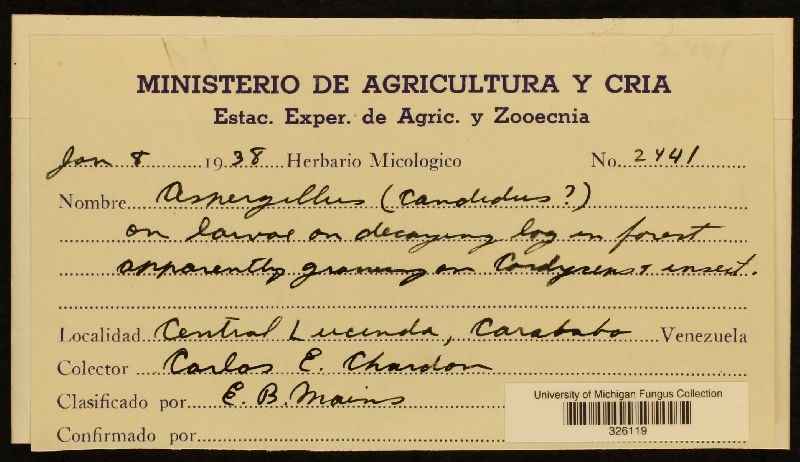 2441
MINISTERIO DE AGRICULTURA Y CRIA
Estac. Exper. de Agric. y Zooecnia
Jan 8 1938 Herbario Micologico No. 2441
Nombre Aspergillus (candidus?)
on larvae on decaying log in forest
apparently growing on Cordyceps + insect.
Localidad Central Lucinda, Carabobo Venezuela
Colector Carlos E. Chardon
Clasificado por E. B. Mains
Confirmado por
University of Michigan Fungus Collection
326119